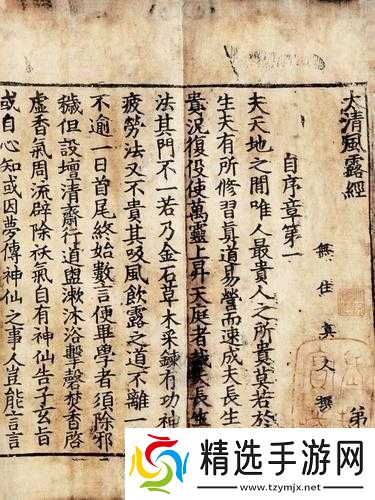 第
太清風露經
無住真人撰
自序章第一
夫天地之間唯人最貴人之所貴莫若於
生夫有所修習真道易營而速成夫長生
貴況復役使萬靈上昇天庭者哉夫長生
法其門不一若乃金石草木采鍊有功神
疲勞法又不貴其吸風飲露之道不離一
不逾一日首尾終始數言便畢學者須除邪
穢但設壇清齋行道盥漱沐浴擊磬焚香啓
虛香氣周流辟除祅氣自有神仙告子玄旨
或自心知或因夢傳神仙之事人豈能言言
精选手游网
www.tzymjx.net